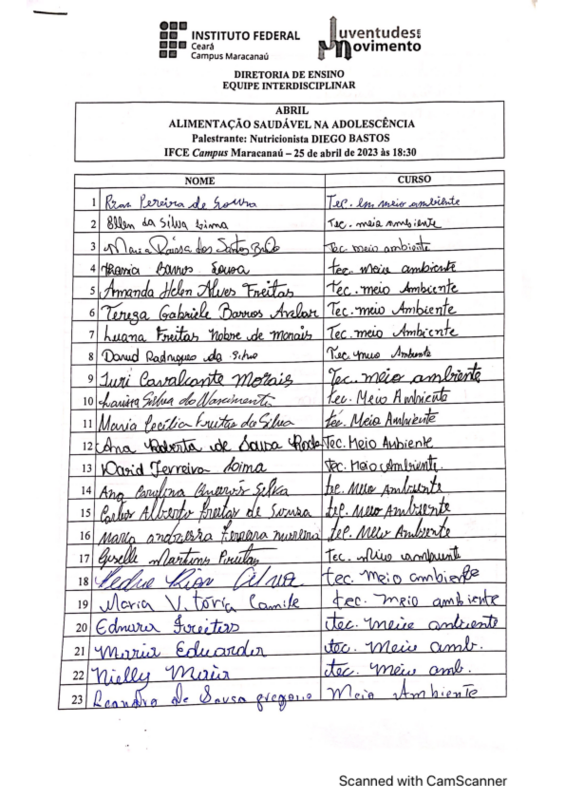 INSTITUTO FEDERAL
Ceará
Campus Maracanaú
Juventudes em Movimento
DIRETORIA DE ENSINO
EQUIPE INTERDISCIPLINAR
ABRIL
ALIMENTAÇÃO SAUDÁVEL NA ADOLESCÊNCIA
Palestrante: Nutricionista DIEGO BASTOS
IFCE Campus Maracanaú – 25 de abril de 2023 às 18:30
NOME CURSO
1 Pereira de Souza Tec. em meio ambiente
2 Ellen da Silva Lima Tec. meio ambiente
3 Maria Raissa dos Santos Tec. meio ambiente
4 Barros Sousa tec. meio ambiente
5 Amanda Helen Alves Freitas tec. meio Ambiente
6 Tereza Gabriele Barros Tec. meio Ambiente
7 Luana Freitas Nobre de morais Tec. meio Ambiente
8 David Rodrigues da Silva Tec meio Ambiente
9 Iuri Cavalcante Morais Tec. meio ambiente
10 Larissa Silva do Nascimento tec. Meio Ambiente
11 Maria Cecília Freitas da Silva téc. Meio Ambiente
12 Ana Roberta de Sousa Tec. Meio Aubiente
13 David Ferreira Lima tec. Meio Ambiente.
14 Ana Carolina Silva tec. Meio Ambiente
15 Carlos Alberto Freitas de Sousa tec. Meio Ambiente
16 tec. Meio Ambiente
17 Giselle Martins Freitas Tec. Meio ambiente
18 Pedro tec. meio ambiente
19 Maria Vitória Camile tec. meio ambiente
20 Ednura Freitas tec. meio ambiente
21 Maria Eduarda tec. Meio amb.
22 Nielly Maria tec. meio amb.
23 Leandro de Sousa gregorio Meio Ambiente
Scanned with CamScanner